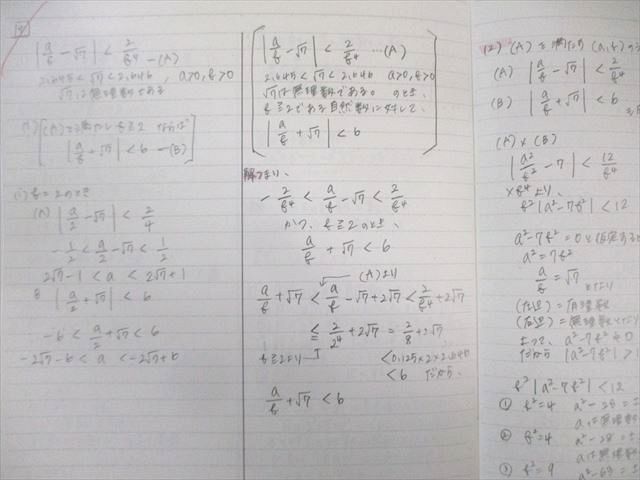 4
|a/b - √7| < 2/b⁴ —(A)
2.645<√7<2.646, a>0, b>0
√7は無理数である
(1) [(A)を満たしb≧2 ならば
|a/b + √7| < 6 —(B)]
(i) b=2のとき
(A) |a/2 - √7| < 2/4
-1/2 < a/2 - √7 < 1/2
2√7-1 < a < 2√7+1
|a/2 + √7| < 6
-6 < a/2 + √7 < 6
-2√7-6 < a < -2√7+6
|a/b - √7| < 2/b⁴ …(A)
2.645<√7<2.646 a>0, b>0
√7は無理数である。のとき、
b≧2である自然数に対して、
|a/b + √7| < 6
解つまり、
-2/b⁴ < a/b - √7 < 2/b⁴
かつ、b≧2のとき、
a/b + √7 < 6
(A)より
a/b + √7 < a/b - √7 + 2√7 < 2/b⁴ + 2√7
≦ 2/2⁴ + 2√7 = 2/8 + 2√7
b≧2より
<0.125×2×2.646
<6 だから、
a/b + √7 < 6
(2) (A)を満たす(a,b)の
(A) |a/b - √7| < 2/b⁴
(B) |a/b + √7| < 6
(A)×(B)
|a²/b² - 7| < 12/b⁴
×b⁴より、
b²|a²-7b²| < 12
a²-7b²=0と仮定すると
a²=7b²
a/b = √7
となり
(左辺)=有理数
(右辺)=無理数となり
よって、a²-7b²≠0
だから |a²-7b²| >
b²|a²-7b²| < 12
① b²=4 a²-28=±
aは無理数
② b²=4 a²-28=±
aは無理数
③ b²=9 a²-63=±